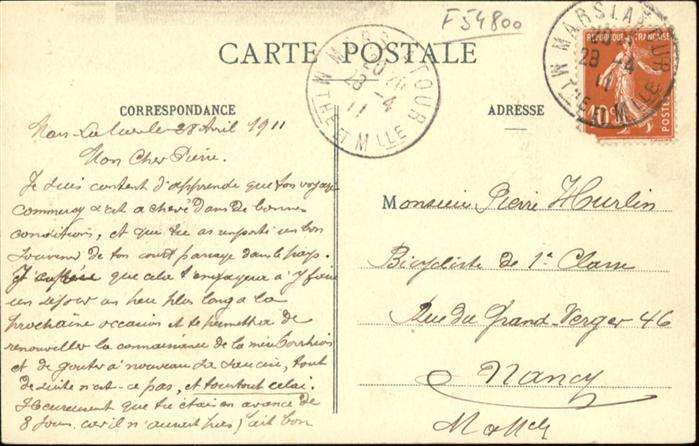 F54800
CARTE POSTALE
CORRESPONDANCE
ADRESSE
MARS LA TOUR
28-4
11
MTHE ET MLLE
MARS LA TOUR
28-4
11
MTHE ET MLLE
REPUBLIQUE FRANÇAISE
10c
POSTES
Mars-la-Tour le 28 Avril 1911
Mon Cher Pierre.
Je suis content d'apprendre que ton voyage
commercy est achevé dans de bonnes
conditions, et que tu as emporté un bon
souvenir de ton court passage dans le pays.
J'espère que cela t'engagera à y faire
un séjour un peu plus long à la
prochaine occasion et te permettra de
renouveller la connaissance de la
et de gouter à nouveau la tout
de suite n'est-ce pas, et tout cela.
Heureusement que tu étais en avance de
8 jours car il n'aurait pas fait bon
Monsieur Pierre Hurlin
Bicycliste de 1e Classe
Rue du Grand-Verger 46
Nancy